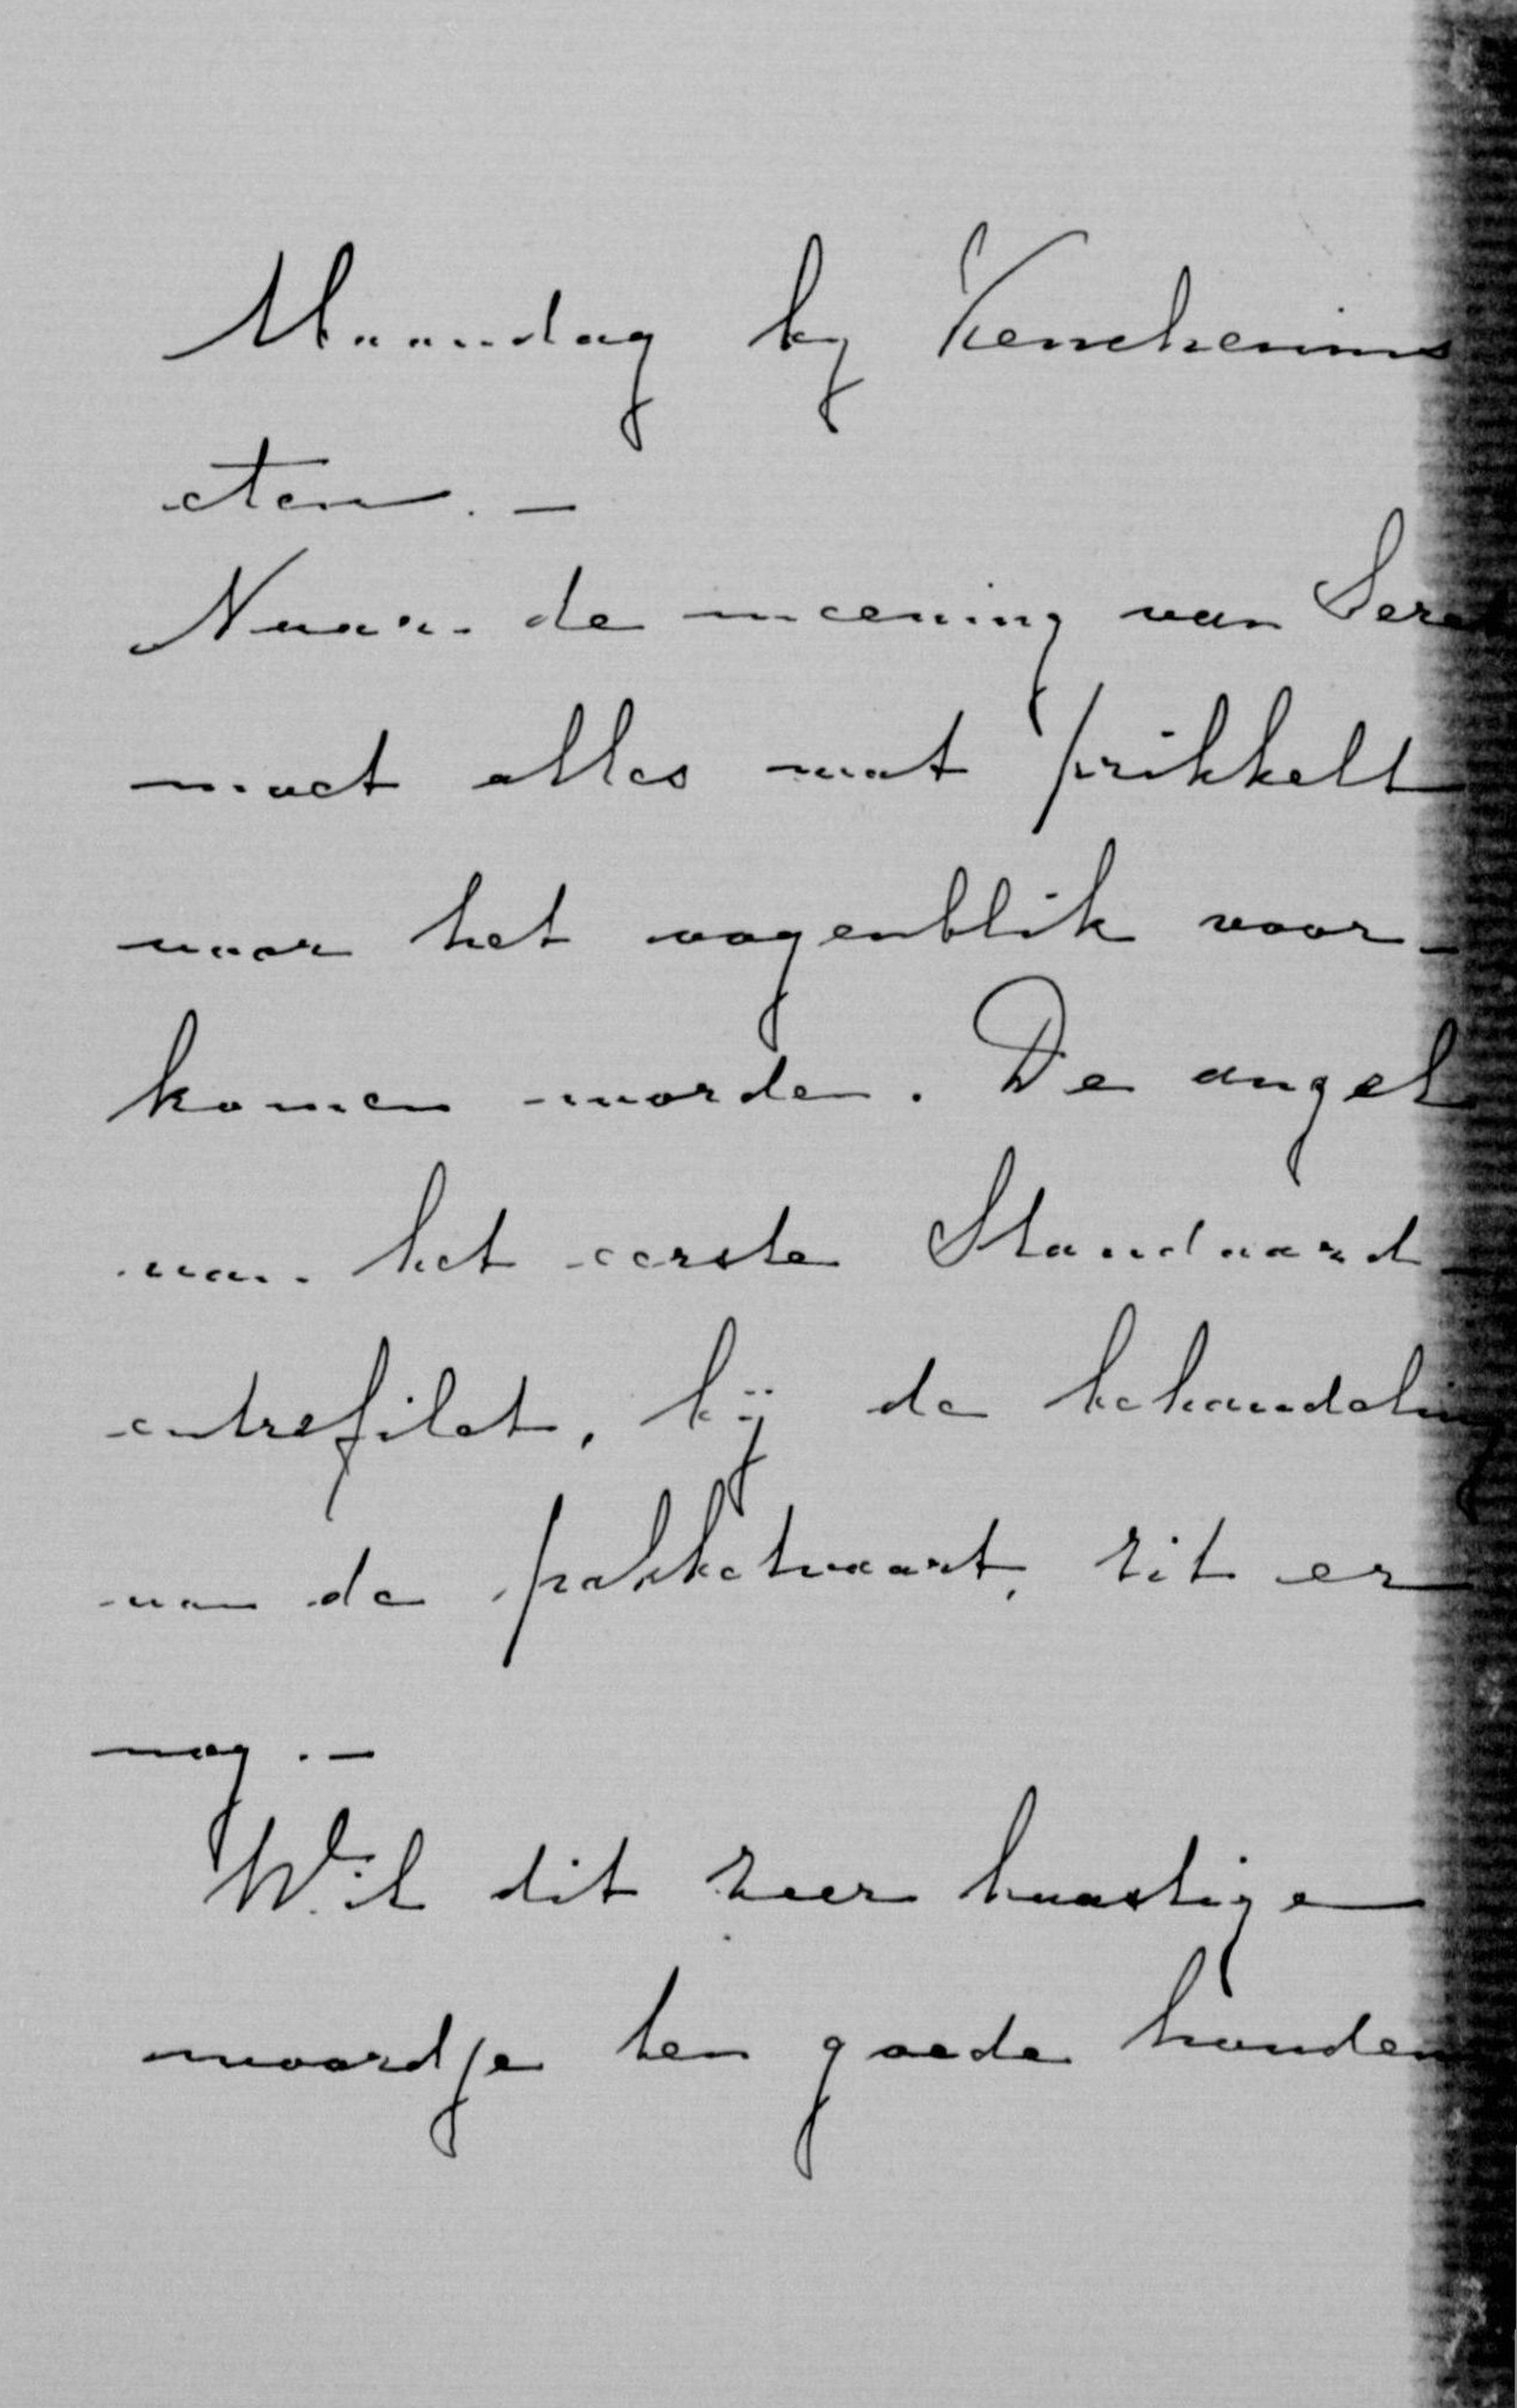 Maandag bij Keuchenius
eten. –
Naar de meening van
moet alles wat prikkelt
voor het oogenblik voor-
komen worden. De angel
van het eerste Standaard-
entrefilet, bij de behandeling
van de pakketvaart, zit er
nog. –
Wil dit zeer haastige
woordje ten goede houden